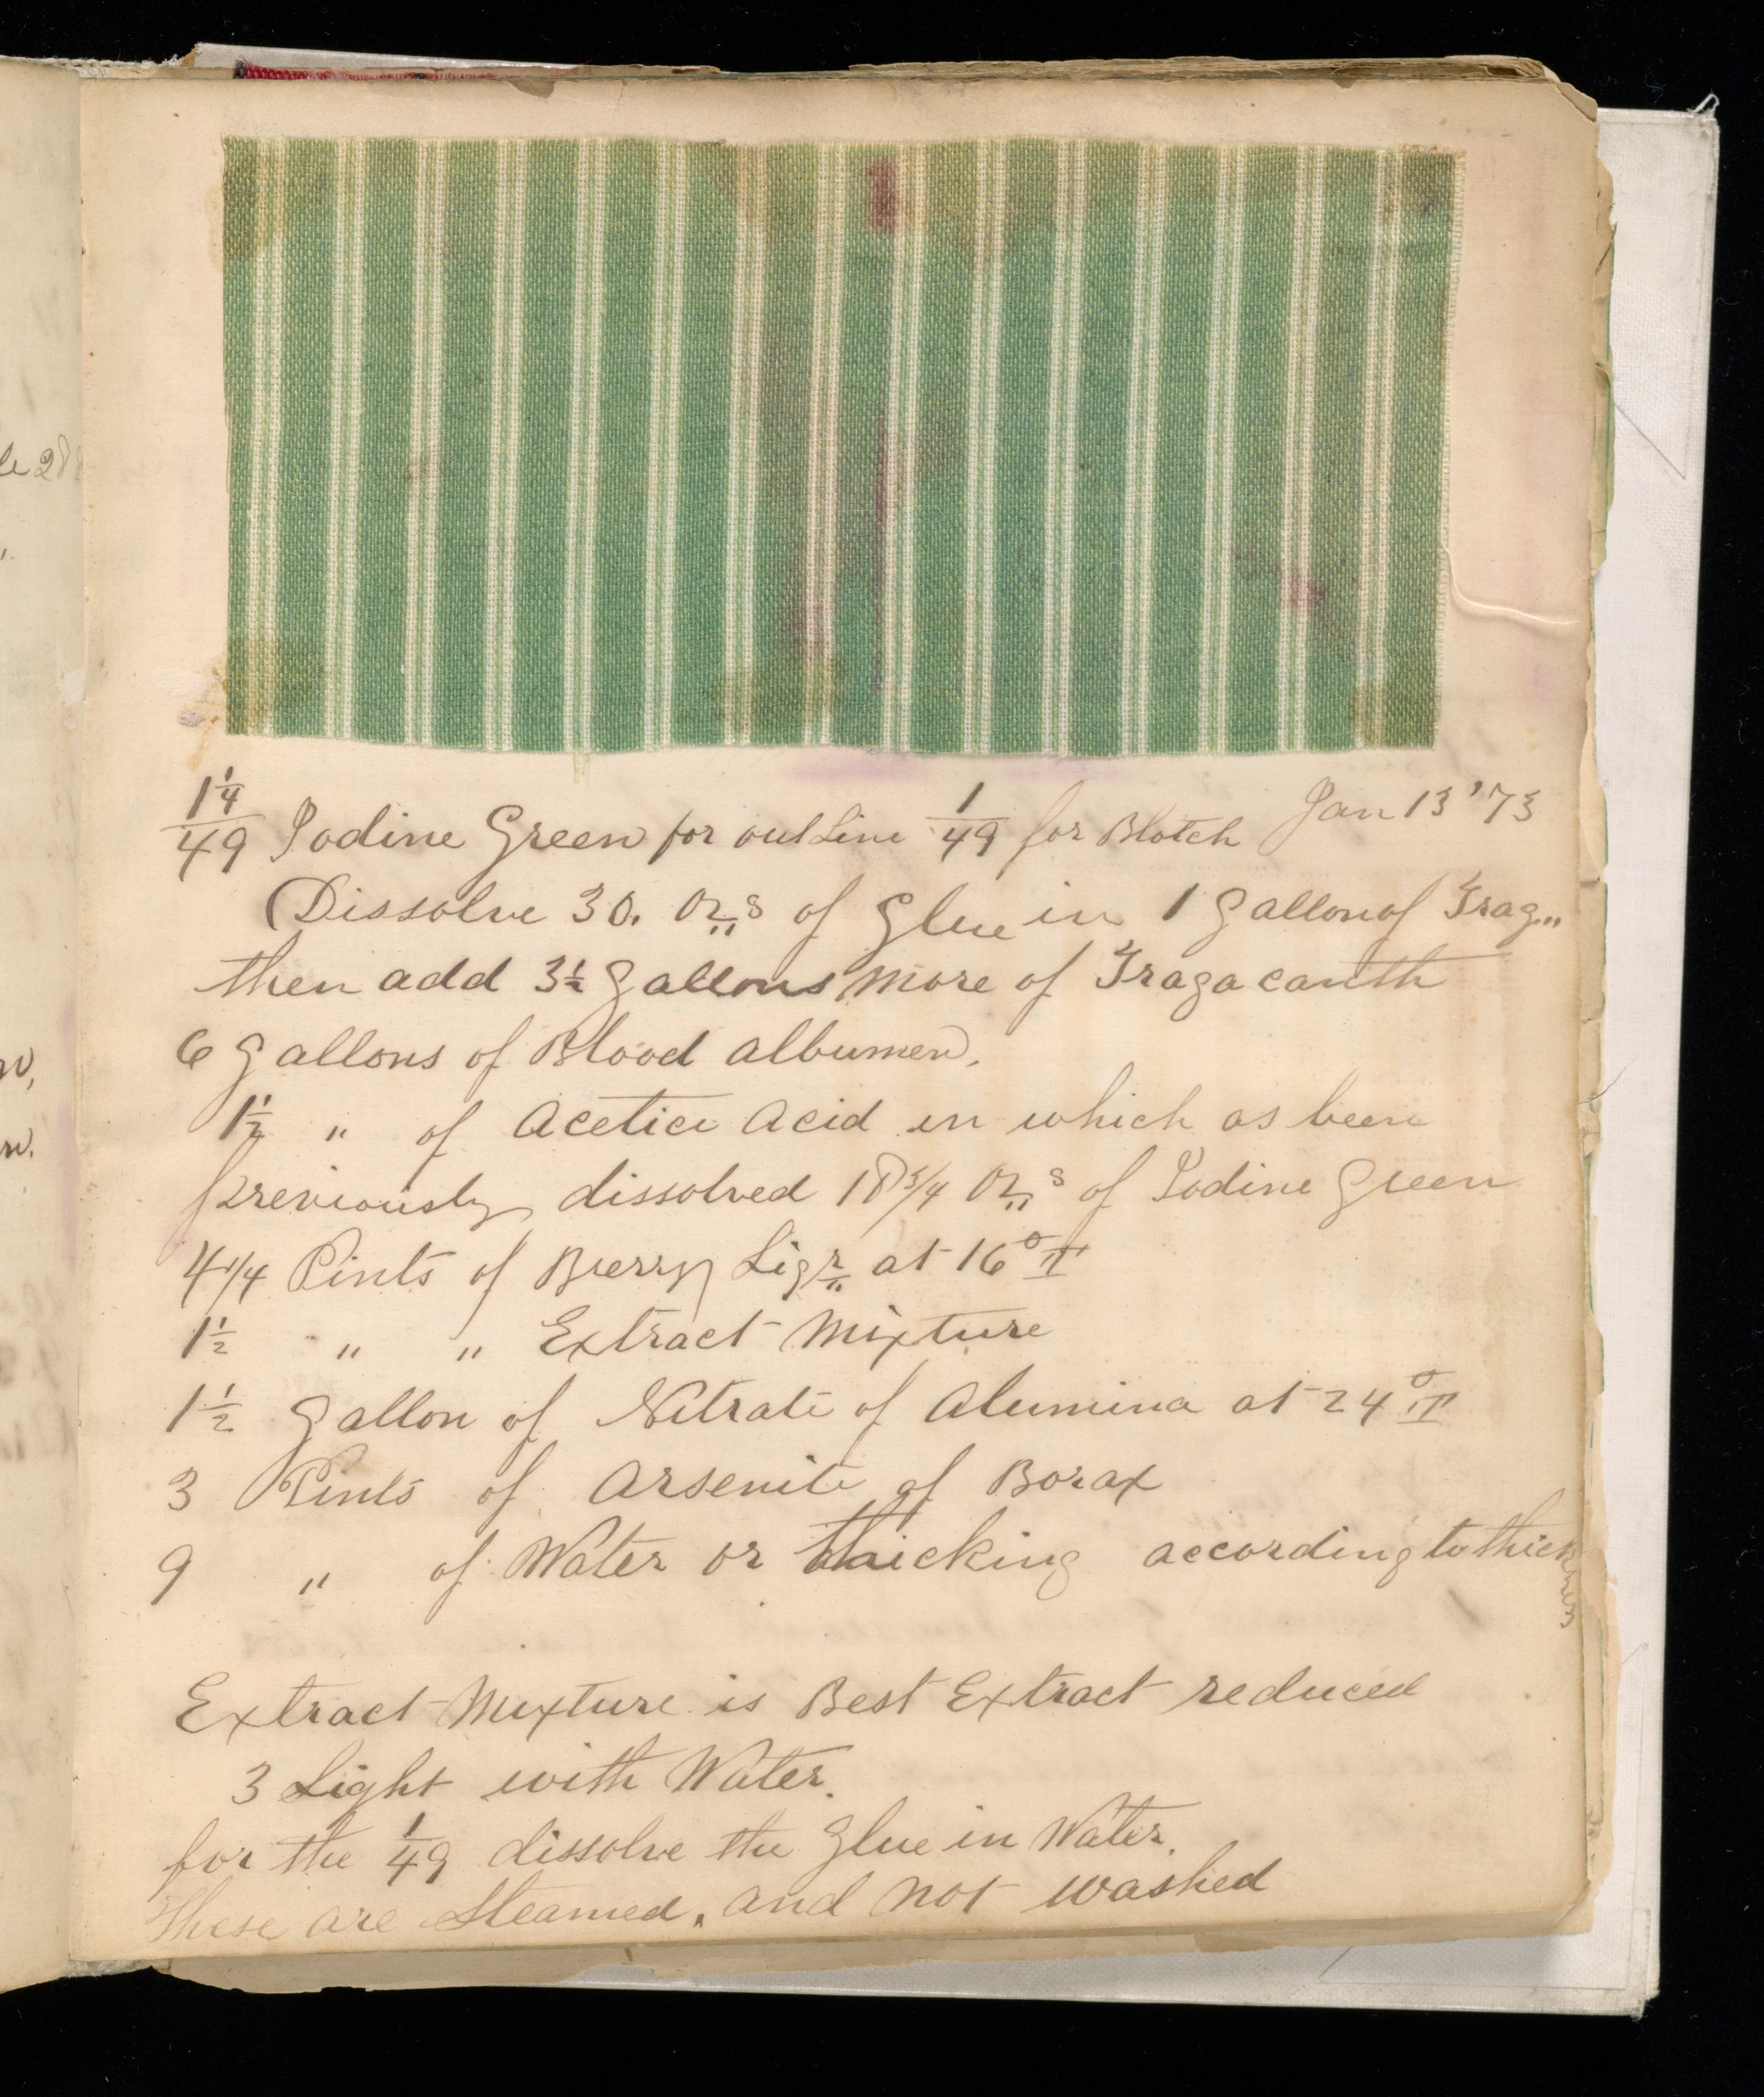 1¼/49 Iodine Green for out Line 1/49 for Blotch Jan 13 '73
Dissolve 30. Ozs of Glue in 1 Gallon of Trag...
then add 3½ Gallons more of Tragacanth
6 Gallons of Blood albumen.
1½ " of Acetici Acid in which as been
previously dissolved 18¾ Ozs of Iodine Green
4¼ Pints of Berry Liqr at 16° T
1½ " " Extract Mixture
1½ Gallon of Nitrate of Alumina at 24° T
3 Pints of Arsenite of Borax
9 " of Water or thicking according to thickness
Extract Mixture is Best Extract reduced
3 Light with Water.
for the 1/49 dissolve the Glue in Water.
These are Steamed, and not washed